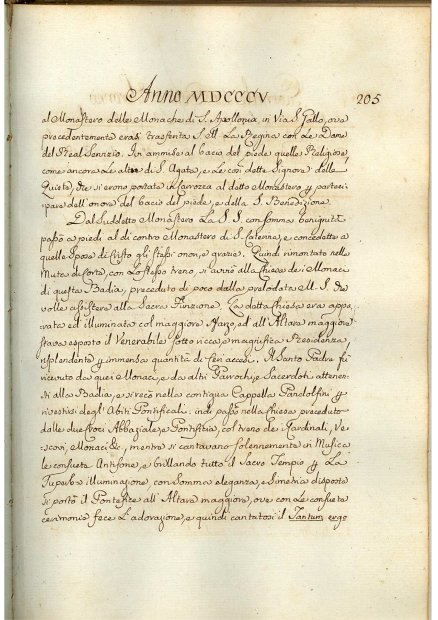 Anno MDCCCV. 205
al Monastero delle Monache di S. Apollonia, in Via S. Gallo, ove
precedentemente erasi trasferita S. M. La Regina con Le Dame
del Real Servizio. Ivi ammise al bacio del piede quelle Religiose,
come ancora Le altre di S. Agata, e Le così dette Signore delle
Quiete, che si erono portate in Carrozza al detto Monastero per parteci-
pare dell'onore del bacio del piede, e della S. Benedizione.
Dal Suddetto Monastero La S. S. con somma benignità
passò a piedi al di contro Monastero di S. Caterina, e concedette a
quelle Spose di Cristo gli stessi onori, e grazie. Quindi rimontato nella
Muta di Corte, con Lo stesso treno, si avviò alla Chiesa dei Monaci
di questa Badia, preceduto di poco dalla prelodata M. S. che
volle assistere alla Sacra Funzione. La detta Chiesa era appa-
rata ed illuminata col maggiore sfarzo, ed all'Altare maggiore
stava esposto il Venerabile sotto ricca, e magnifica Residenza,
risplendente per immensa quantità di ceri accesi. Il Santo Padre fu
ricevuto da quei Monaci, e da altri Parrochi, e Sacerdoti attenen-
ti alla Badia, e si recò nella contigua Cappella Pandolfini per
rivestirsi degli Abiti Pontificali: indi passò nella Chiesa preceduto
dalle due Croci Abbaziale, e Pontificia, col treno dei Cardinali, Ve-
scovi, Monaci &c., mentre si cantavano solennemente in Musica
le consuete Antifone, e brillando tutto il Sacro Tempio per La
superba illuminazione, con somma eleganza, e Simetria disposta
si portò il Pontefice all'Altare maggiore, ove con Le consuete
cerimonie fece L'adorazione, e quindi cantatosi il Tantum ergo